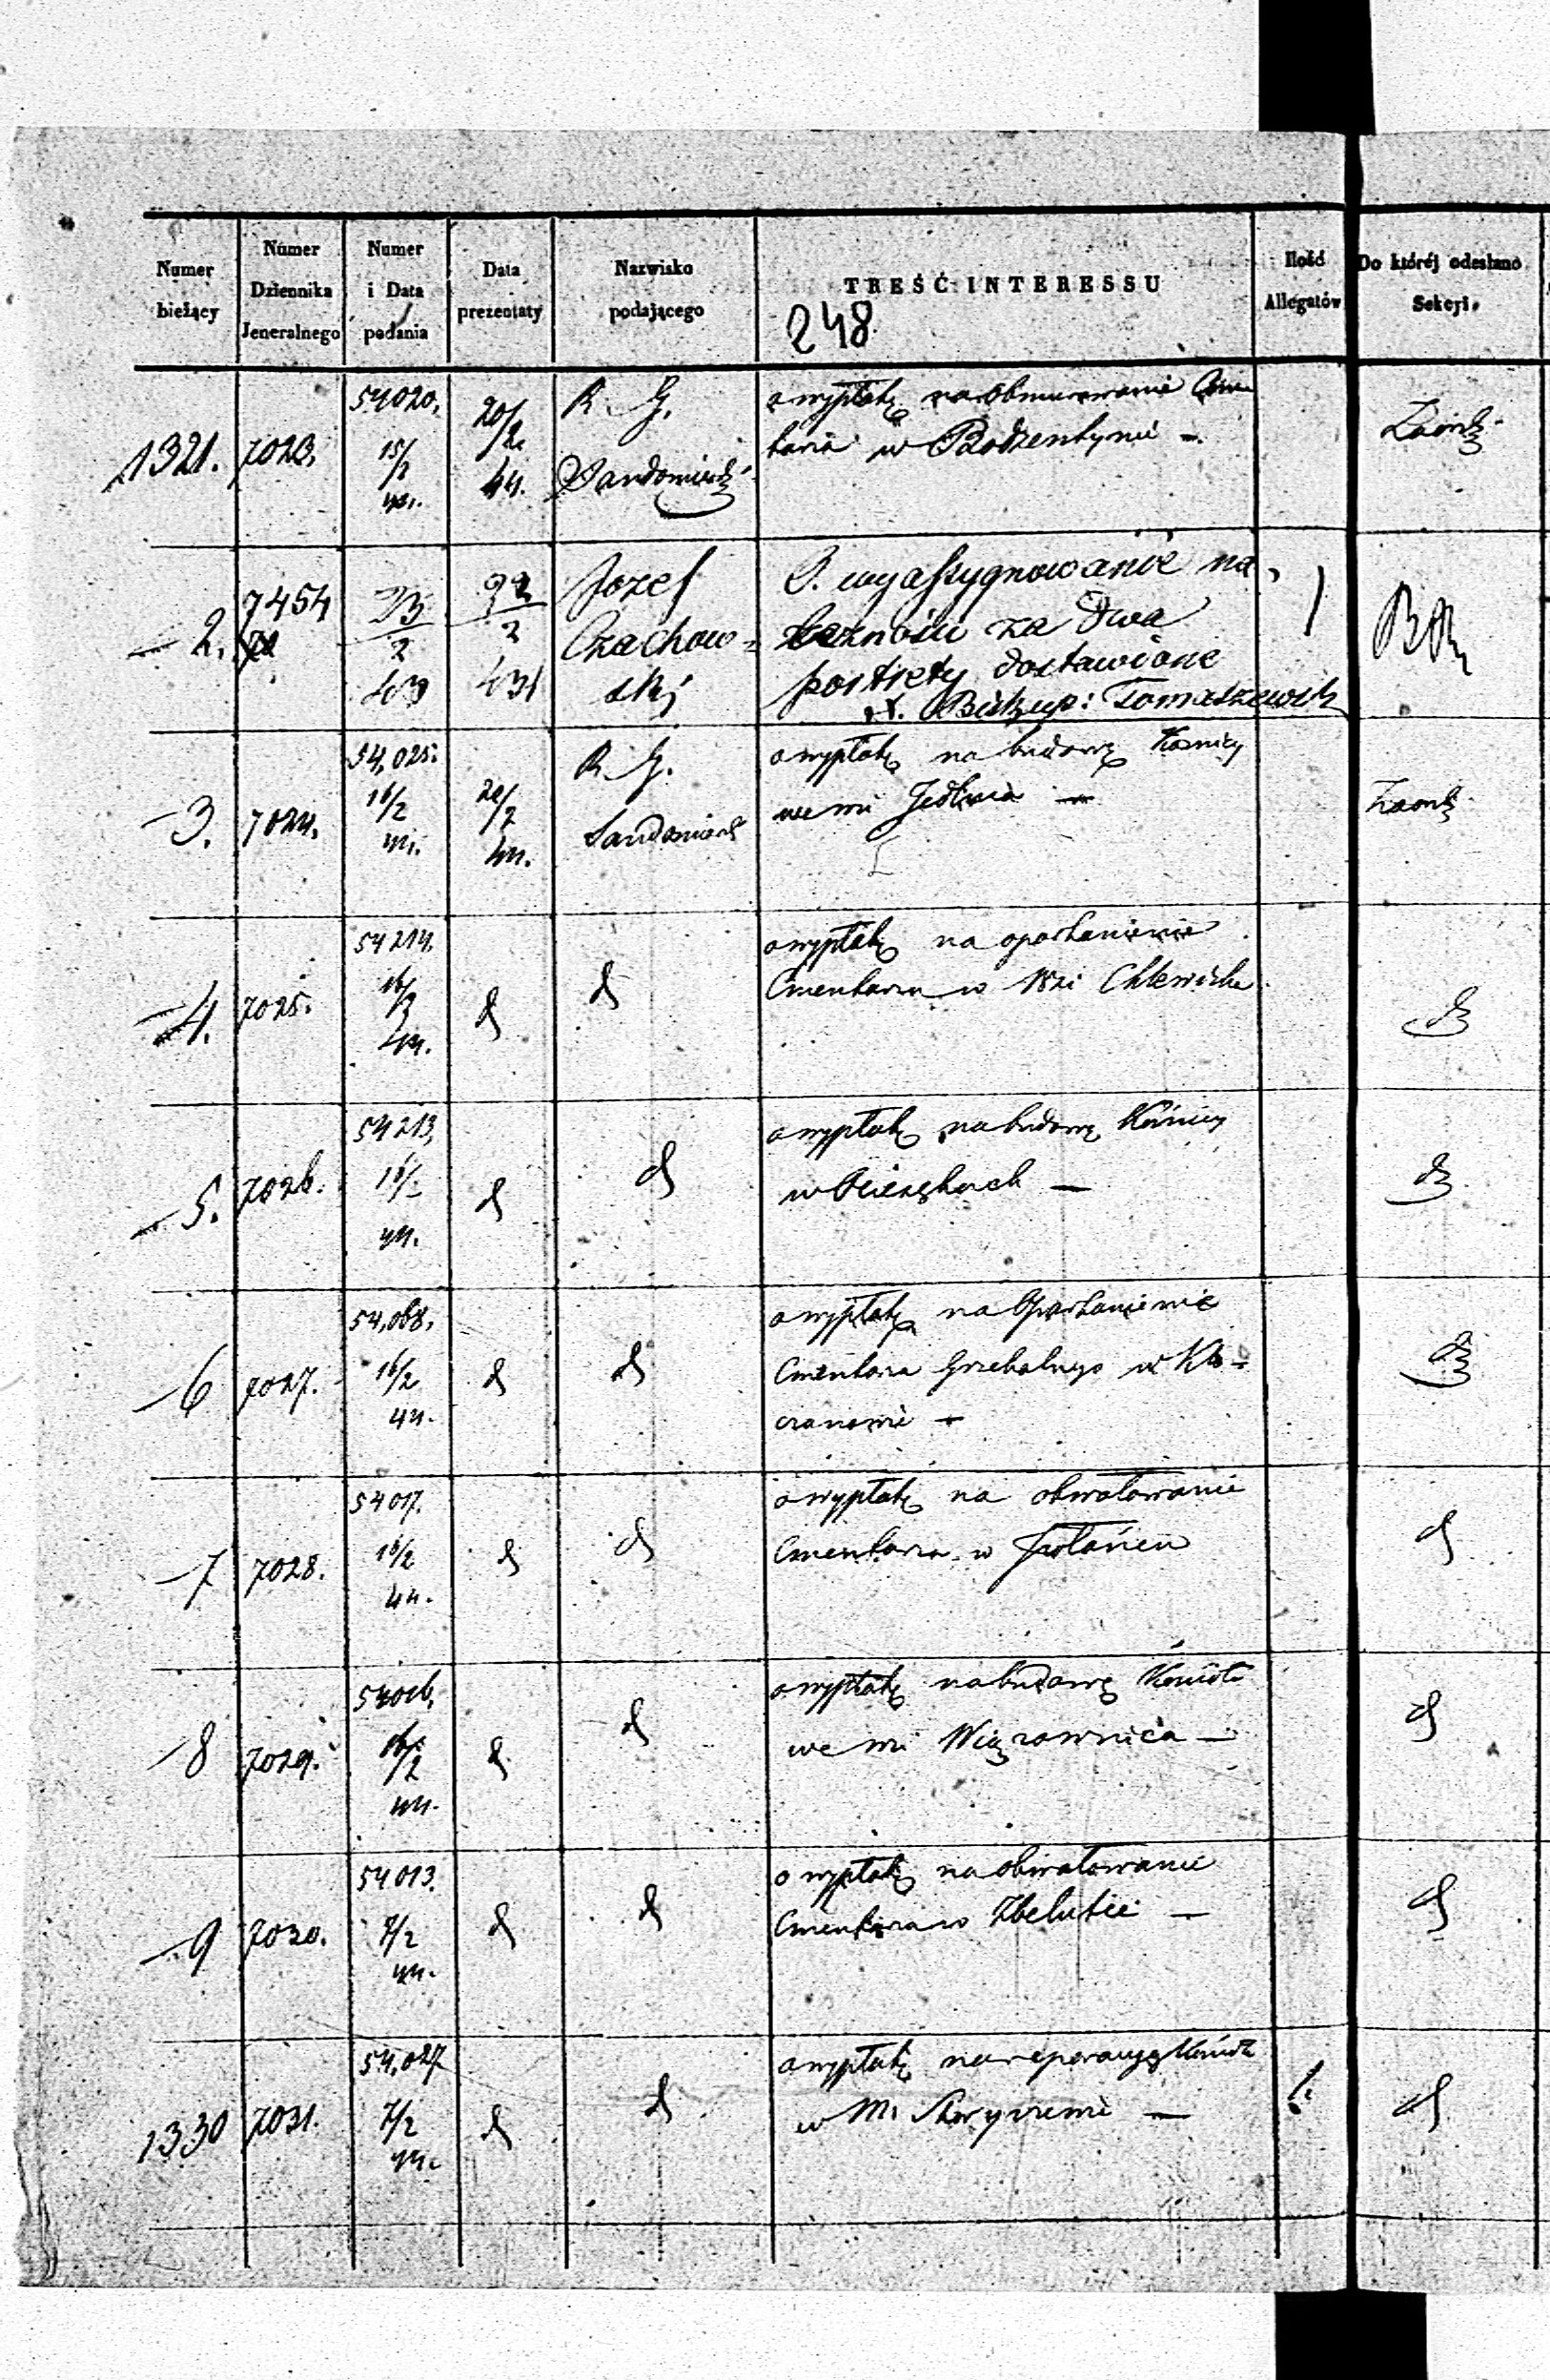 Numer bieżący
Numer Dziennika Jeneralnego
Numer i Data podania
Data prezentaty
Nazwisko podającego
TREŚĆ INTERESSU
Ilość Allegatów
Do któréj odesłano Sekcyi.
248
1321.
7023.
54020.
15/2
20/2
44.
R. G.
Sandomirsk
o wypłatę na obmurowanie Cmen
tarza w Bodzentynie —
2.
7454
23/2
22/2
Jozef
Czachow=
ski
O. wyassygnowanie na
za dwa
portrety dostawione
X. Biskup: Tomaszewsk
1
3.
7024.
54,025.
16/2
20/2
44.
R. G.
Sandomirsk
o wypłatę na budowę Kosnicy
we wsi Jedlnia —
4.
7025.
54214.
16/2
44.
o wypłatę na oparkanienie
Cmentarza w Wsi Chlewiska
5.
7026.
54213,
44.
o wypłatę na budowę Kośnicy
w —
6
7027.
54,068,
16/2
44.
o wypłatę na Oparkanienie
Cmentarza Grzebalnego w
7
7028.
54017.
16/2
44.
o wypłatę na obwałowanie
Cmentarza w
8
7029.
54016,
16/2
44.
o wypłatę na budowę Kościoła
we wsi Wiązownica —
9
7030.
54013.
7/2
44.
o wypłatę na obwałowanie
Cmentarza w Zbelutce —
1330
7031.
54,027
7/2
44.
o wypłatę na reperacyą Kościoła
w M. Skrzynnie —
1.